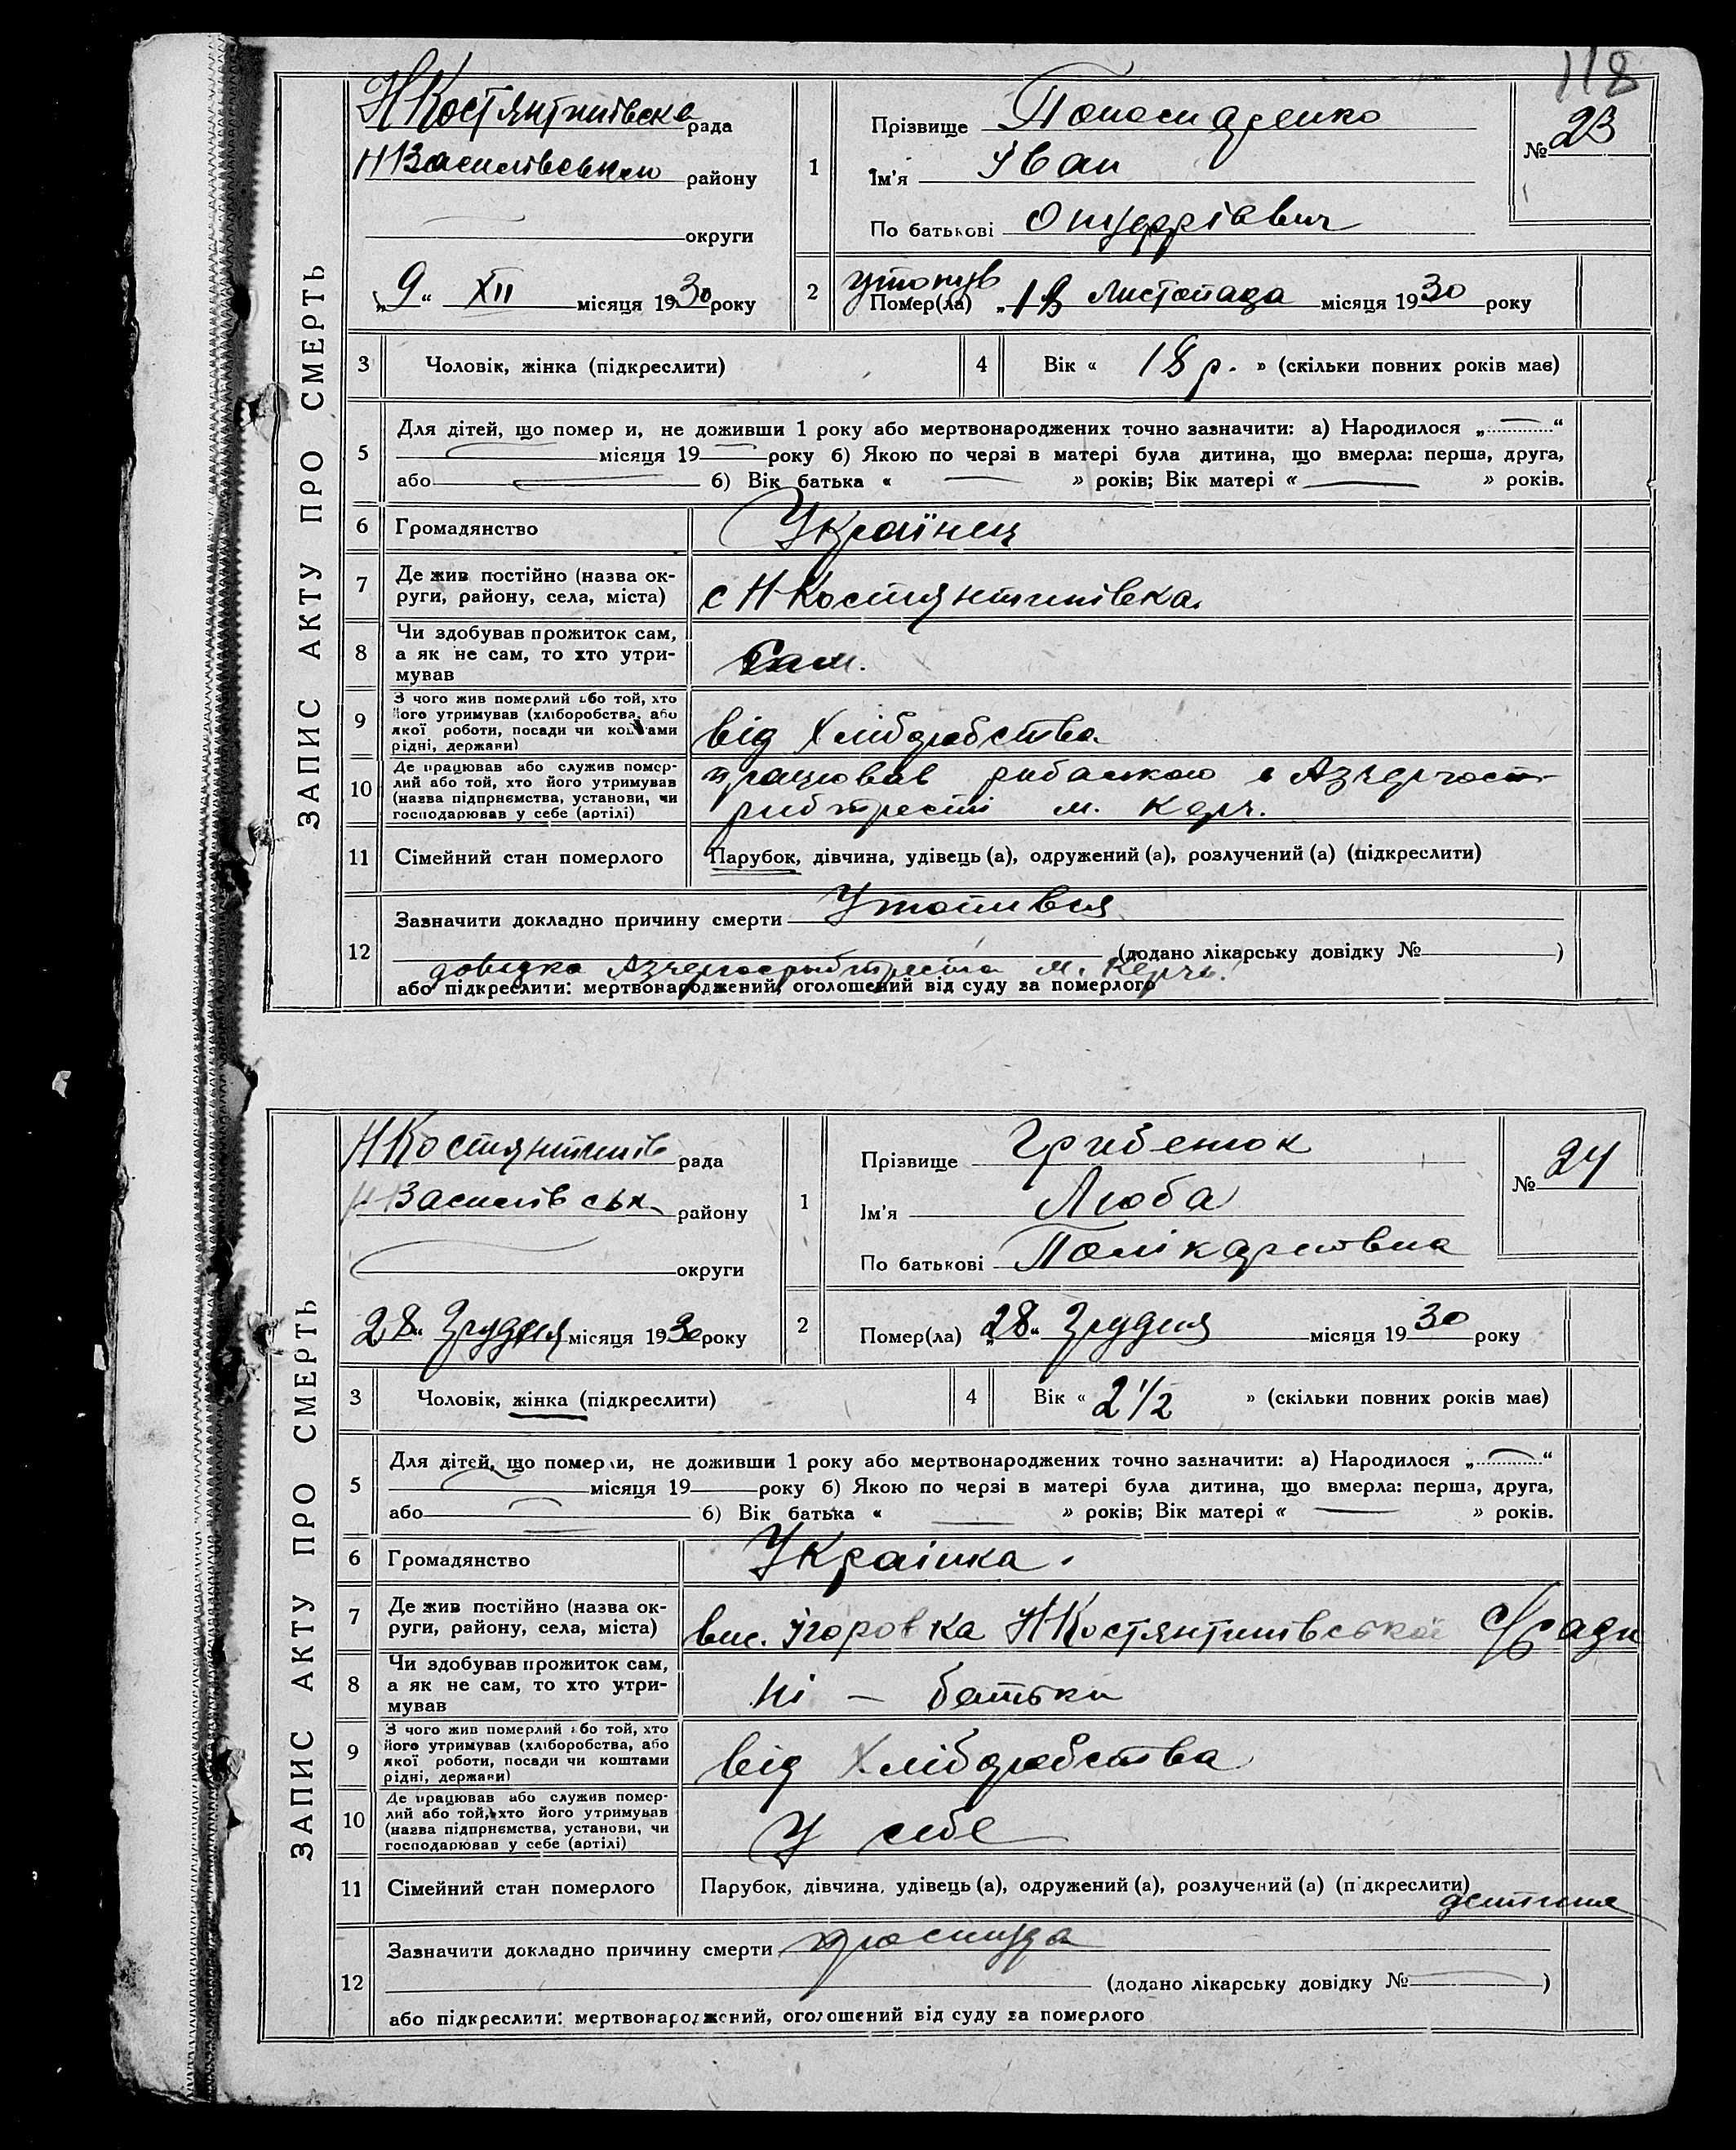 118
ЗАПИС АКТУ ПРО СМЕРТЬ
НКостянтинівська рада
НВасилівського району
округи
„9“ XII місяця 1930 року
1
Прізвище
Ім'я Іван
По батькові Онуфріевич
№ 23
2
утонув
Помер(ла) „18 Листопада місяця 1930 року
3 Чоловік, жінка (підкреслити)
4 Вік « 18 р. » (скільки повних років має)
5 Для дітей, що помер и, не доживши 1 року або мертвонароджених точно зазначити: а) Народилося „ “
місяця 19 року б) Якою по черзі в матері була дитина, що вмерла: перша, друга,
або б) Вік батька « » років; Вік матері « » років.
6 Громадянство Українец
7 Де жив постійно (назва округи, району, села, міста) с Н-Костянтинівка.
8 Чи здобував прожиток сам, а як не сам, то хто утримував Сам.
9 З чого жив померлий або той, хто його утримував (хліборобства, або якої роботи, посади чи коштами рідні, держави) від Хліборобства
10 Де працював або служив померлий або той, хто його утримував (назва підприємства, установи, чи господарював у себе (артілі) працював рибалкою в Азчергос
рибтресті м. Керч.
11 Сімейний стан померлого Парубок, дівчина, удівець (а), одружений (а), розлучений (а) (підкреслити)
12 Зазначити докладно причину смерти Утопився
(додано лікарську довідку № )
довідка Азчергосрибтреста м. Керчь.
або підкреслити: мертвонароджений, оголошений від суду за померлого
ЗАПИС АКТУ ПРО СМЕРТЬ
НКостянтинів рада
НВасилівськ. району
округи
28“ Грудня місяця 1930 року
1
Прізвище Грибенюк
Ім'я Люба
По батькові Полікарповна
№ 24
2 Помер(ла) „28“ Грудня місяця 1930 року
3 Чоловік, жінка (підкреслити)
4 Вік « 2 1/2 » (скільки повних років має)
5 Для дітей, що померли, не доживши 1 року або мертвонароджених точно зазначити: а) Народилося „ “
місяця 19 року б) Якою по черзі в матері була дитина, що вмерла: перша, друга,
або б) Вік батька « » років; Вік матері « » років.
6 Громадянство Українка.
7 Де жив постійно (назва округи, району, села, міста) вис. Ігоровка НКостянтинівської С/Ради
8 Чи здобував прожиток сам, а як не сам, то хто утримував Ні – батьки
9 З чого жив померлий або той, хто його утримував (хліборобства, або якої роботи, посади чи коштами рідні, держави) від Хліборобства
10 Де працював або служив померлий або той, хто його утримував (назва підприємства, установи, чи господарював у себе (артілі) У себе
11 Сімейний стан померлого Парубок, дівчина, удівець (а), одружений (а), розлучений (а) (підкреслити)
дитина
12 Зазначити докладно причину смерти простуда
(додано лікарську довідку № )
або підкреслити: мертвонароджений, оголошений від суду за померлого